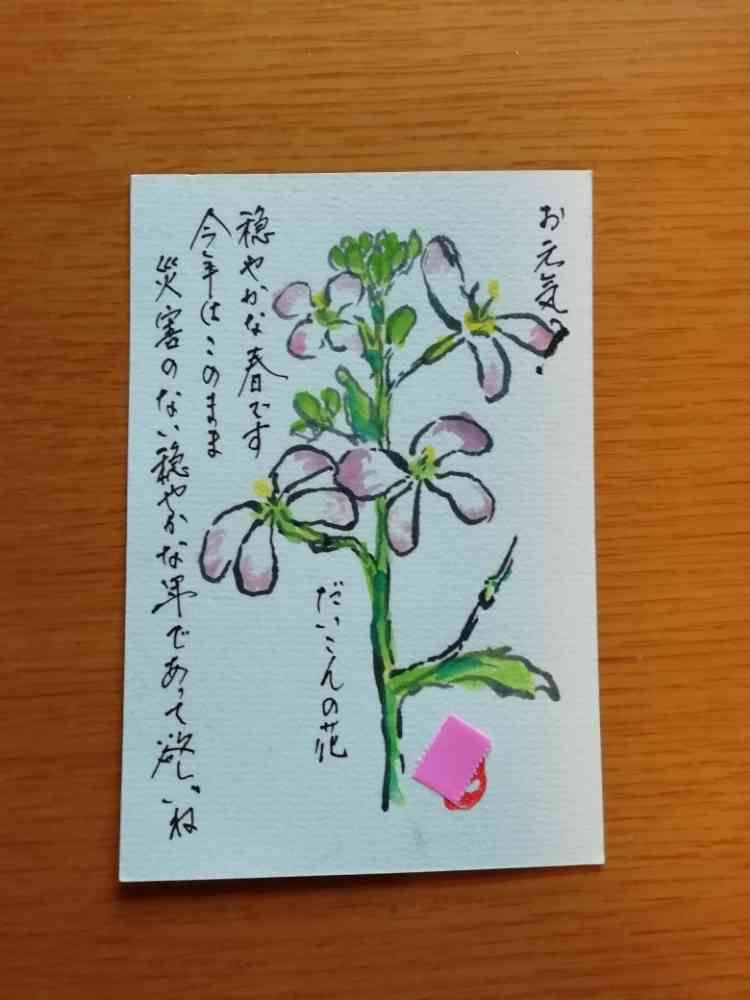 お元気?
穏やかな春です
今年はこのまま
災害のない穏やかな年であって欲しいね
だいこんの花